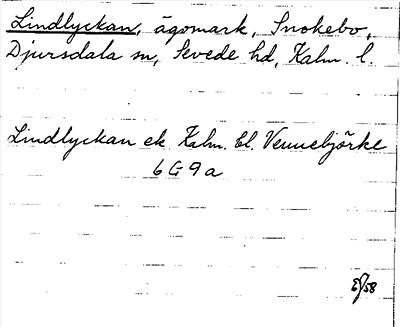 Lindlyckan, ägomark, Snokebo,
Djursdala sn, Sevede hd, Kalm. l.
Lindlyckan ek. Kalm. bl. Vennebjörke
6 G 9 a